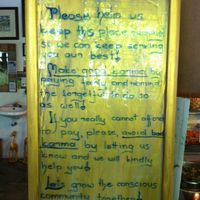 Please help us
keep this place running
so we can keep serving
you our best!
Make good karma by
paying fairly and
the forgetful to do so
as well!
If you really cannot afford
to pay, please, avoid bad
karma by letting us
know and we will kindly
help you!
Lets grow the conscious
community together!